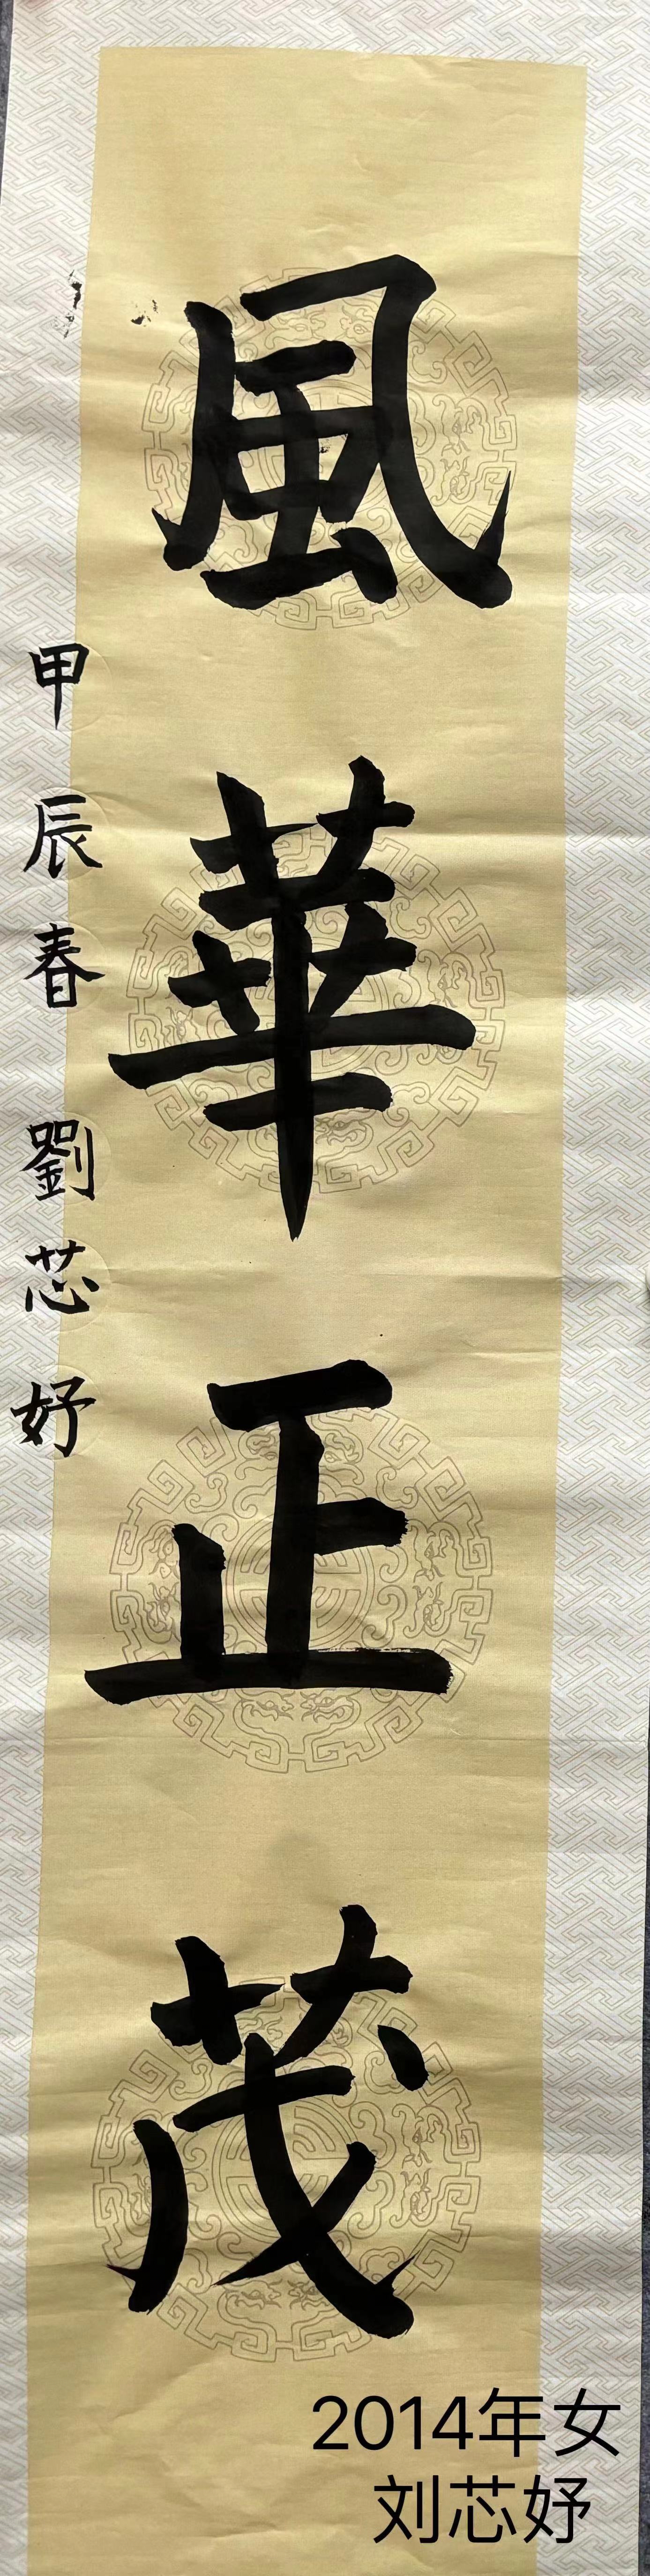 風華正茂
甲辰春 劉芯妤
2014年女
刘芯妤